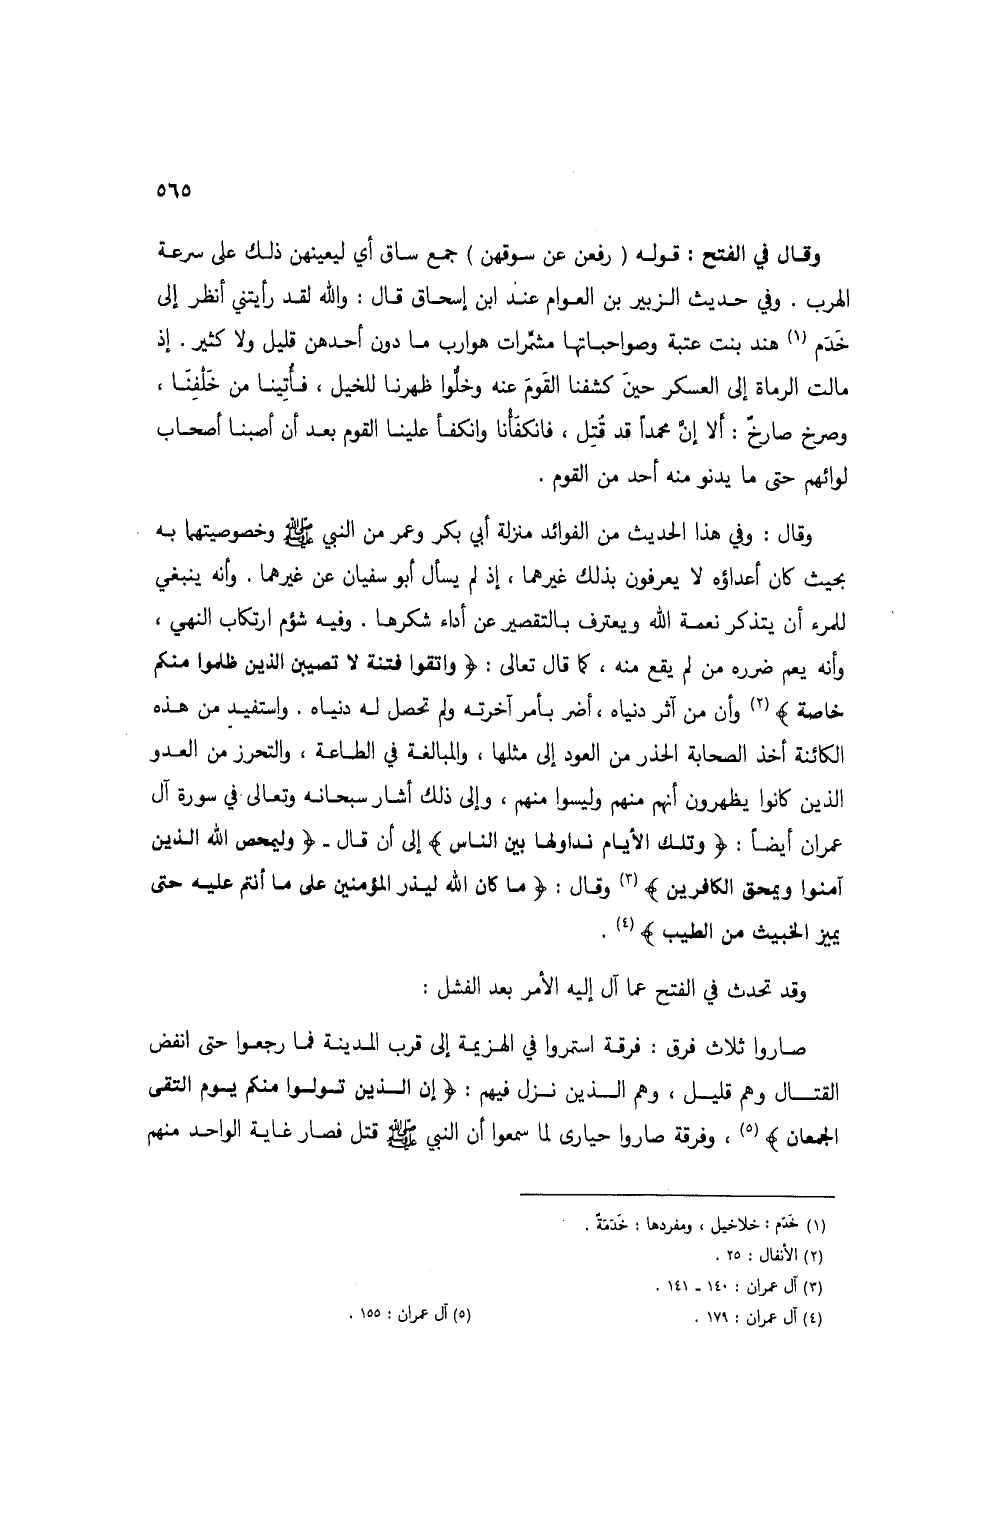 ٥٦٥
وقال في الفتح : قوله ( رفعن عن سوقهن ) جمع ساق أي ليعينهن ذلك على سرعة
الهرب . وفي حديث الزبير بن العوام عند ابن إسحاق قال : والله لقد رأيتني أنظر إلى
خَدَم (١) هند بنت عتبة وصواحباتها مشمِّرات هوارب ما دون أحدهن قليل ولا كثير . إذ
مالت الرماة إلى العسكر حينَ كشفنا القومَ عنه وخلُّوا ظهرنا للخيل ، فأُتِينا من خَلْفِنَا ،
وصرخ صارخٌ : أَلا إنَّ محمداً قد قُتِل ، فانكفَأْنا وانكفأ علينا القوم بعد أن أصبنا أصحاب
لوائهم حتى ما يدنو منه أحد من القوم .
وقال : وفي هذا الحديث من الفوائد منزلة أبي بكر وعمر من النبي ﷺ وخصوصيتهما به
بحيث كان أعداؤه لا يعرفون بذلك غيرهما ، إذ لم يسأل أبو سفيان عن غيرهما . وأنه ينبغي
للمرء أن يتذكر نعمة الله ويعترف بالتقصير عن أداء شكرها . وفيه شؤم ارتكاب النهي ،
وأنه يعم ضرره من لم يقع منه ، كما قال تعالى : ﴿ واتقوا فتنة لا تصيبن الذين ظلموا منكم
خاصة ﴾ (٢) وأن من آثر دنياه ، أضر بأمر آخرته ولم تحصل له دنياه . واستفيد من هذه
الكائنة أخذ الصحابة الحذر من العود إلى مثلها ، والمبالغة في الطاعة ، والتحرز من العدو
الذين كانوا يظهرون أنهم منهم وليسوا منهم ، وإلى ذلك أشار سبحانه وتعالى في سورة آل
عمران أيضاً : ﴿ وتلك الأيام نداولها بين الناس ﴾ إلى أن قال ـ ﴿ وليمحص الله الذين
آمنوا ويمحق الكافرين ﴾ (٣) وقال : ﴿ ما كان الله ليذر المؤمنين على ما أنتم عليه حتى
يميز الخبيث من الطيب ﴾ (٤) .
وقد تحدث في الفتح عما آل إليه الأمر بعد الفشل :
صاروا ثلاث فرق : فرقة استمروا في الهزيمة إلى قرب المدينة فما رجعوا حتى انفض
القتال وهم قليل ، وهم الذين نزل فيهم : ﴿ إن الذين تولوا منكم يوم التقى
الجمعان ﴾ (٥) ، وفرقة صاروا حيارى لما سمعوا أن النبي ﷺ قتل فصار غاية الواحد منهم
(١) خَدَم : خلاخيل ، ومفردها : خَدَمَةٌ .
(٢) الأنفال : ٢٥ .
(٣) آل عمران : ١٤٠ ـ ١٤١ .
(٤) آل عمران : ١٧٩ . (٥) آل عمران : ١٥٥ .